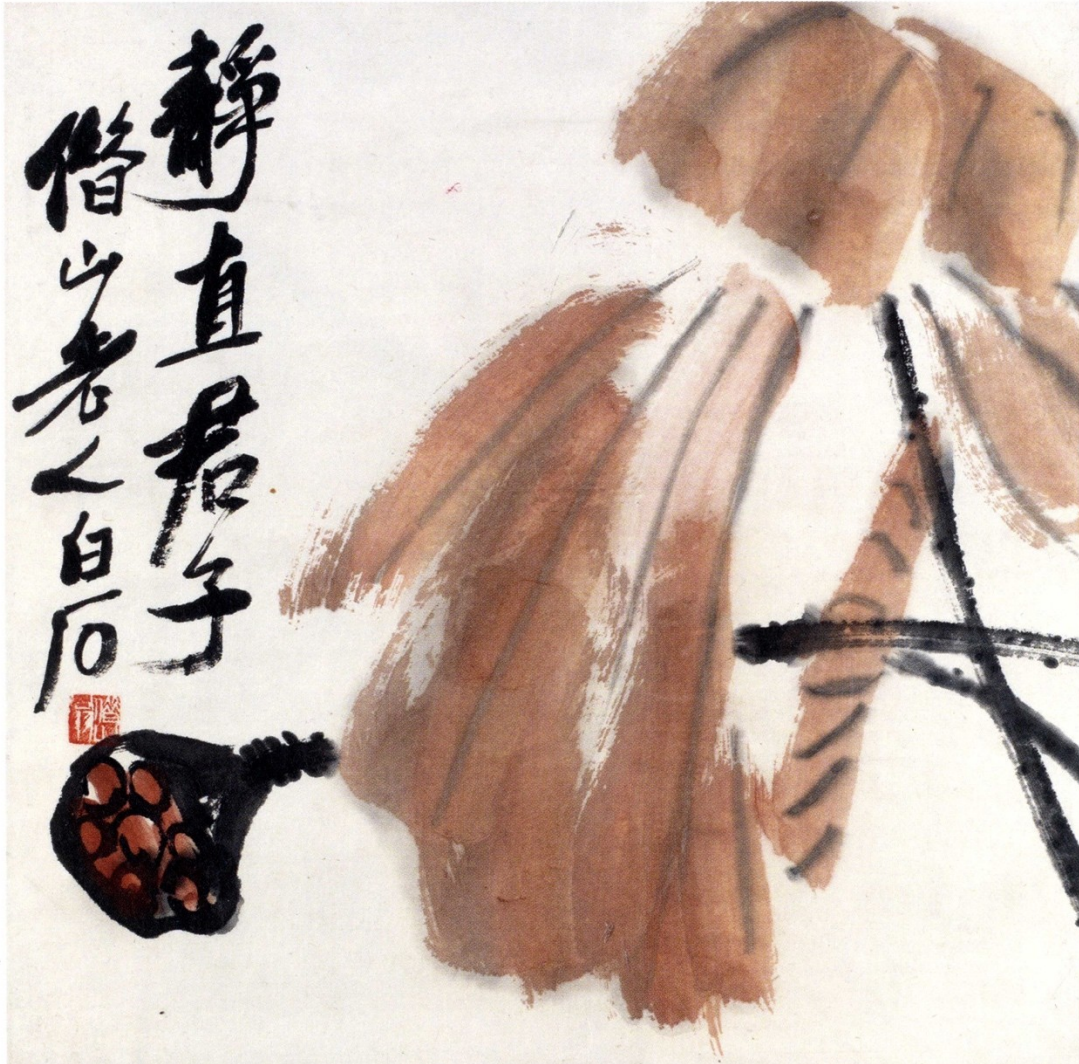 靜直君子
借山老人白石